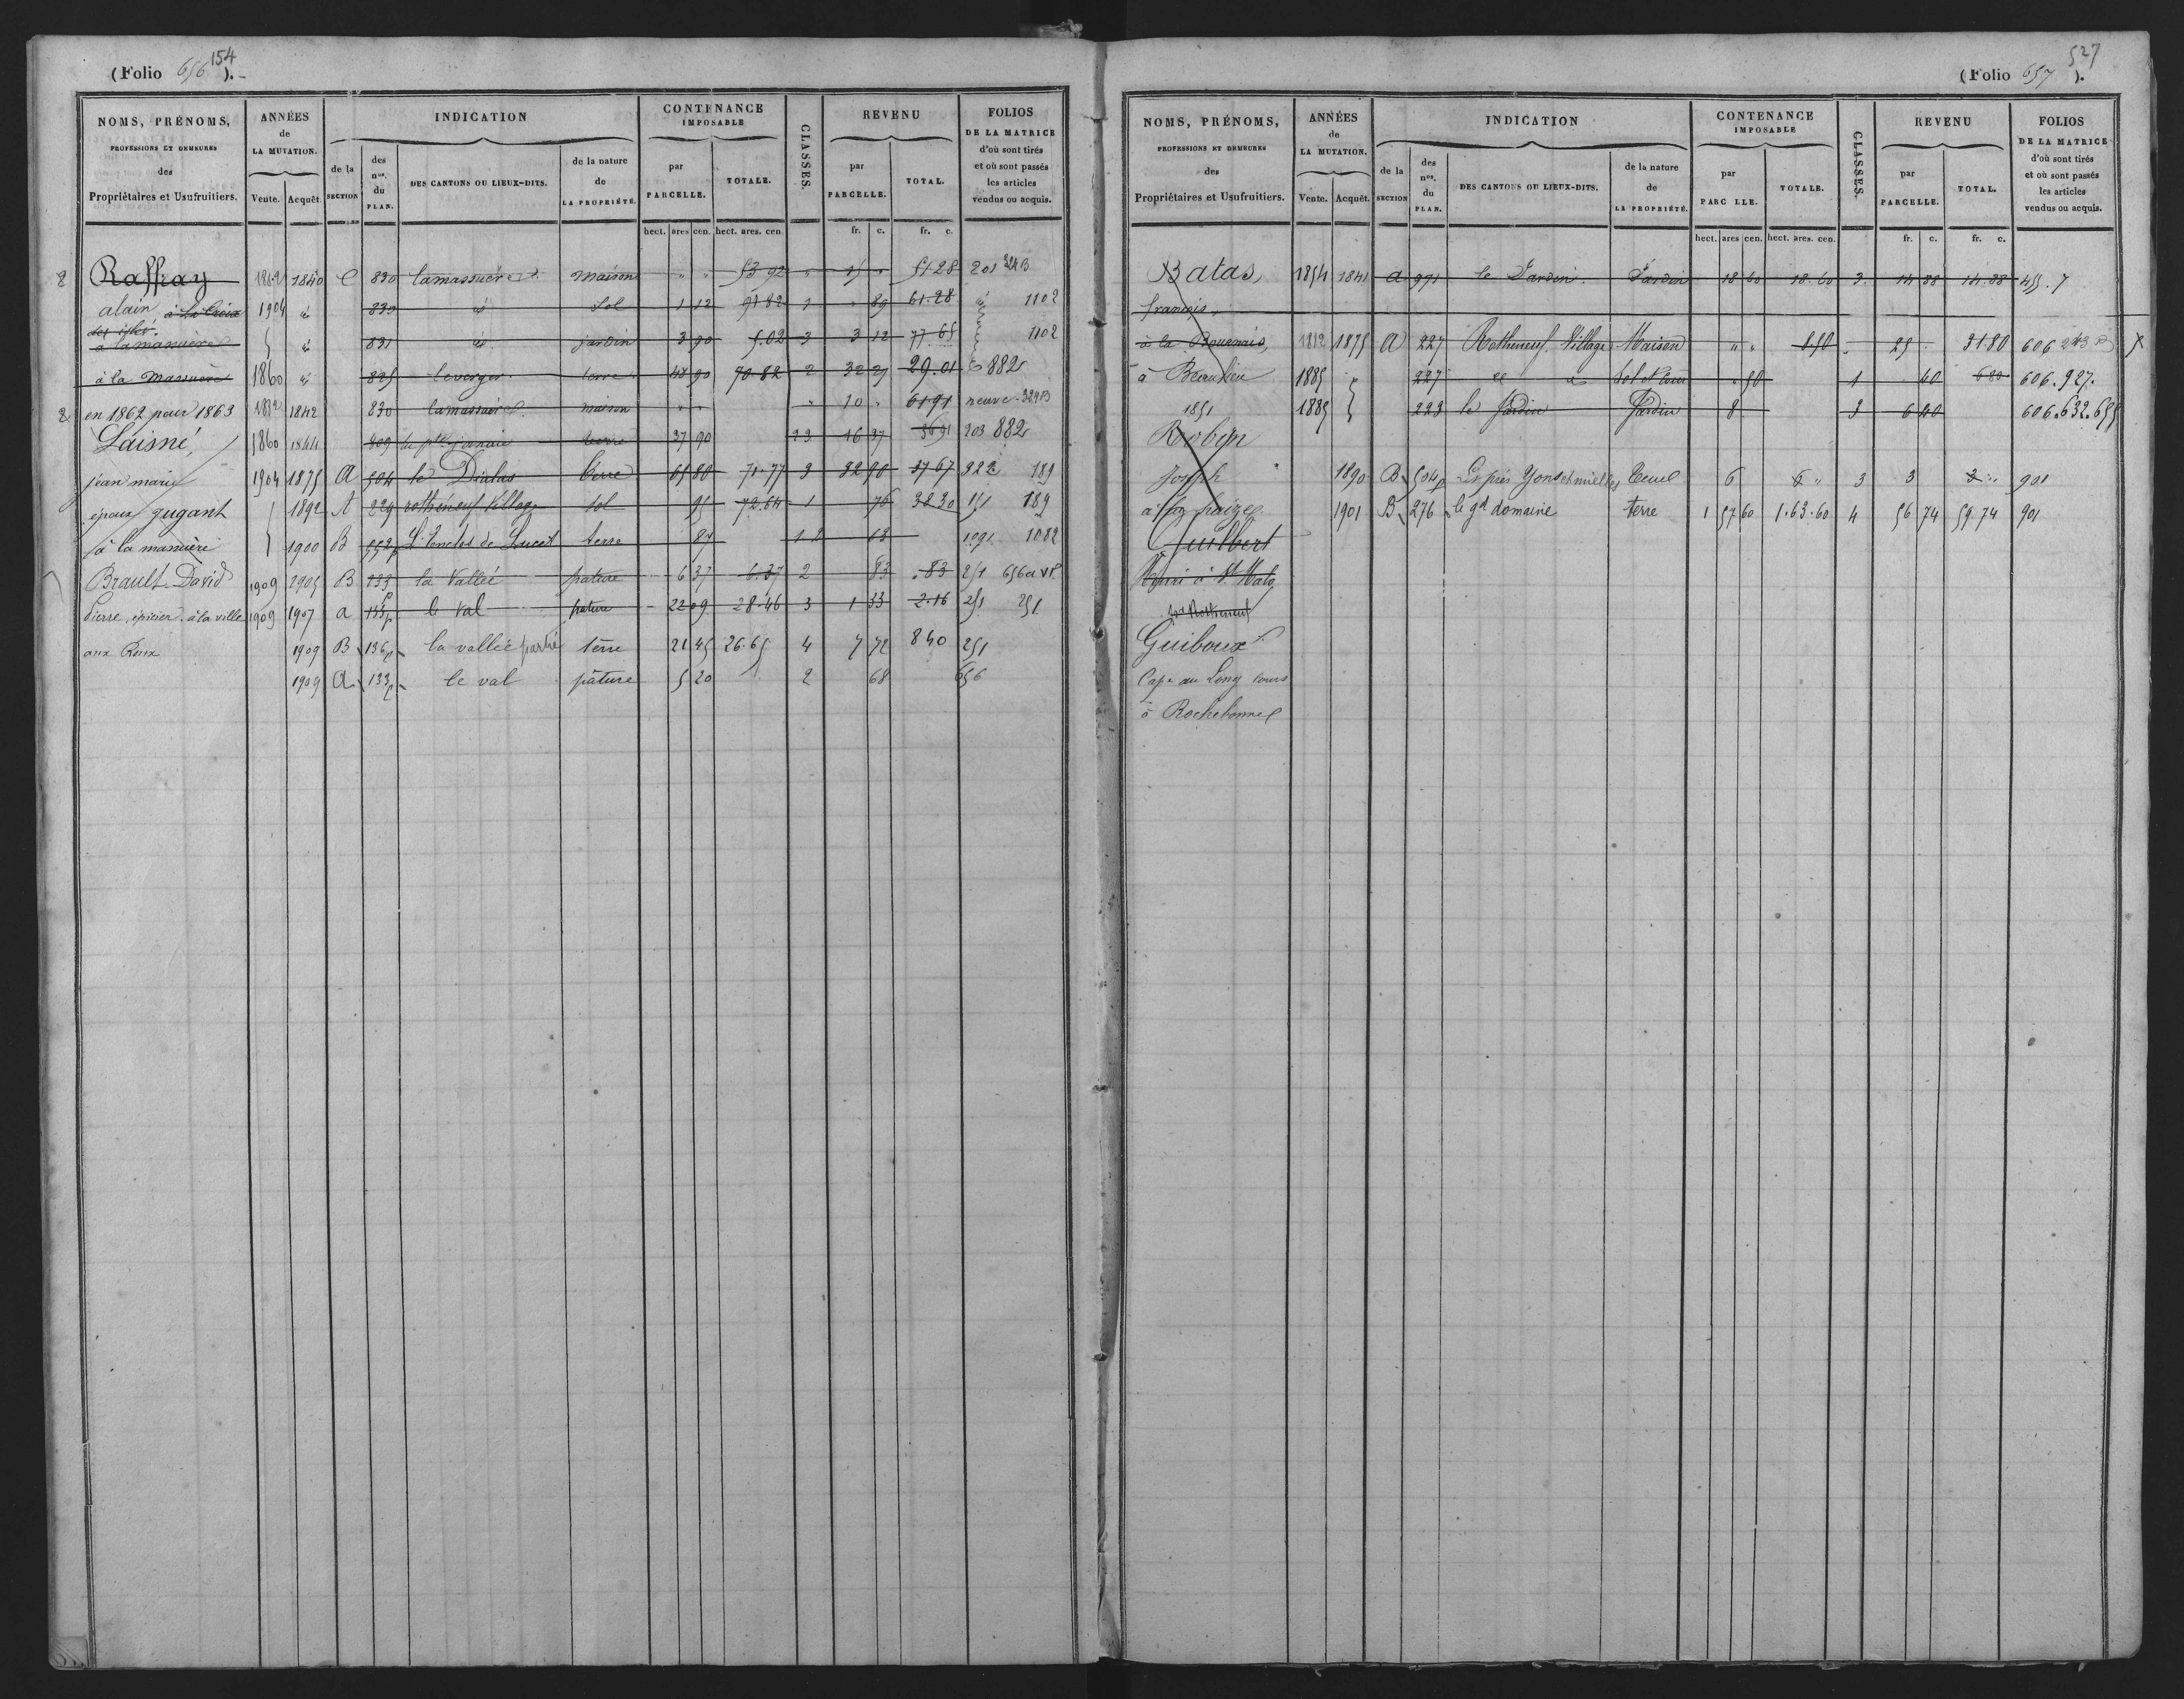 154
(Folio 656).
NOMS, PRÉNOMS, PROFESSIONS ET DEMEURES des Propriétaires et Usufruitiers.
ANNÉES de LA MUTATION. Vente. Acquêt.
INDICATION
de la SECTION
des nos. du PLAN.
DES CANTONS OU LIEUX-DITS.
de la nature de LA PROPRIÉTÉ.
CONTENANCE IMPOSABLE
par PARCELLE. TOTALE.
CLASSES.
REVENU
par PARCELLE. TOTAL.
FOLIOS DE LA MATRICE d'où sont tirés et où sont passés les articles vendus ou acquis.
hect. ares cen. hect. ares. cen. fr. c. fr. c.
Raffray 1840 C 830 Lamassuère Maison " " 53 92 " 15 " 51 28 201 324B
alain, à La Croix 1904 id 830 id Sol 1 12 1 " 89 61.28 id 1102
à lamassuère id 831 id jardin 3 90 5.02 3 3 12 77.65 1102
à la Massuère 1860 id 825 le verger terre 48 90 70.82 2 32 29.01 882
en 1862 pour 1863 1842 830 lamassuère maison " " " 10 " 61 91 neuve 324B
Laisné, 1860 1844 809 terre 37 90 2 3 16 37 203 882
jean marie 1904 1875 A 504 le Dialas terre 65 80 71.77 3 32 90 37 67 322 189
époux gugant 1892 A 229 rothéneuf Village Sol 95 72.64 1 76 38 30 151 189
à la massuère 1900 B 552p L'Enclos de Lucet terre 87 12 63 1091 1082
Brault David 1909 1905 B 133p la Vallée pature 6 37 6.37 2 83 .83 251 656
Pierre, épicier à la ville 1909 1907 a le val pature 22 09 28.46 3 1 33 2.16 251 251
aux Roux 1909 B 136p la vallée partie terre 21 45 26.65 4 7 72 8 40 251
1909 A 133p le val pâture 5 20 2 68 656
527
(Folio 657).
NOMS, PRÉNOMS, PROFESSIONS ET DEMEURES des Propriétaires et Usufruitiers.
ANNÉES de LA MUTATION. Vente. Acquêt.
INDICATION
de la SECTION
des nos. du PLAN.
DES CANTONS OU LIEUX-DITS.
de la nature de LA PROPRIÉTÉ.
CONTENANCE IMPOSABLE
par PARC LLE. TOTALE.
CLASSES.
REVENU
par PARCELLE. TOTAL.
FOLIOS DE LA MATRICE d'où sont tirés et où sont passés les articles vendus ou acquis.
hect. ares cen. hect. ares. cen. fr. c. fr. c.
Batas, 1854 1841 A 991 le Jardin Jardin 18 60 18.60 3 14 88 14.88 455.7
françois,
à la 1875 A 227 Rotheneuf Village Maison " " 8.50 25 31.80 606
à Beaulieu 1885 227 id id Sol et cour 50 1 40 6 80 606.927.
1851 1885 223 le Jardin Jardin 8 3 6 40 606.632.655
Robin
Joseph 1890 B 504p 6 6 " 3 3 3 " 901
à 1901 B 276 le gd domaine terre 1 57 60 1.63.60 4 56 74 59.74 901
Guilbert
Henri à St Malo
Guiboux
Cape au Long cours
à Rochebonne